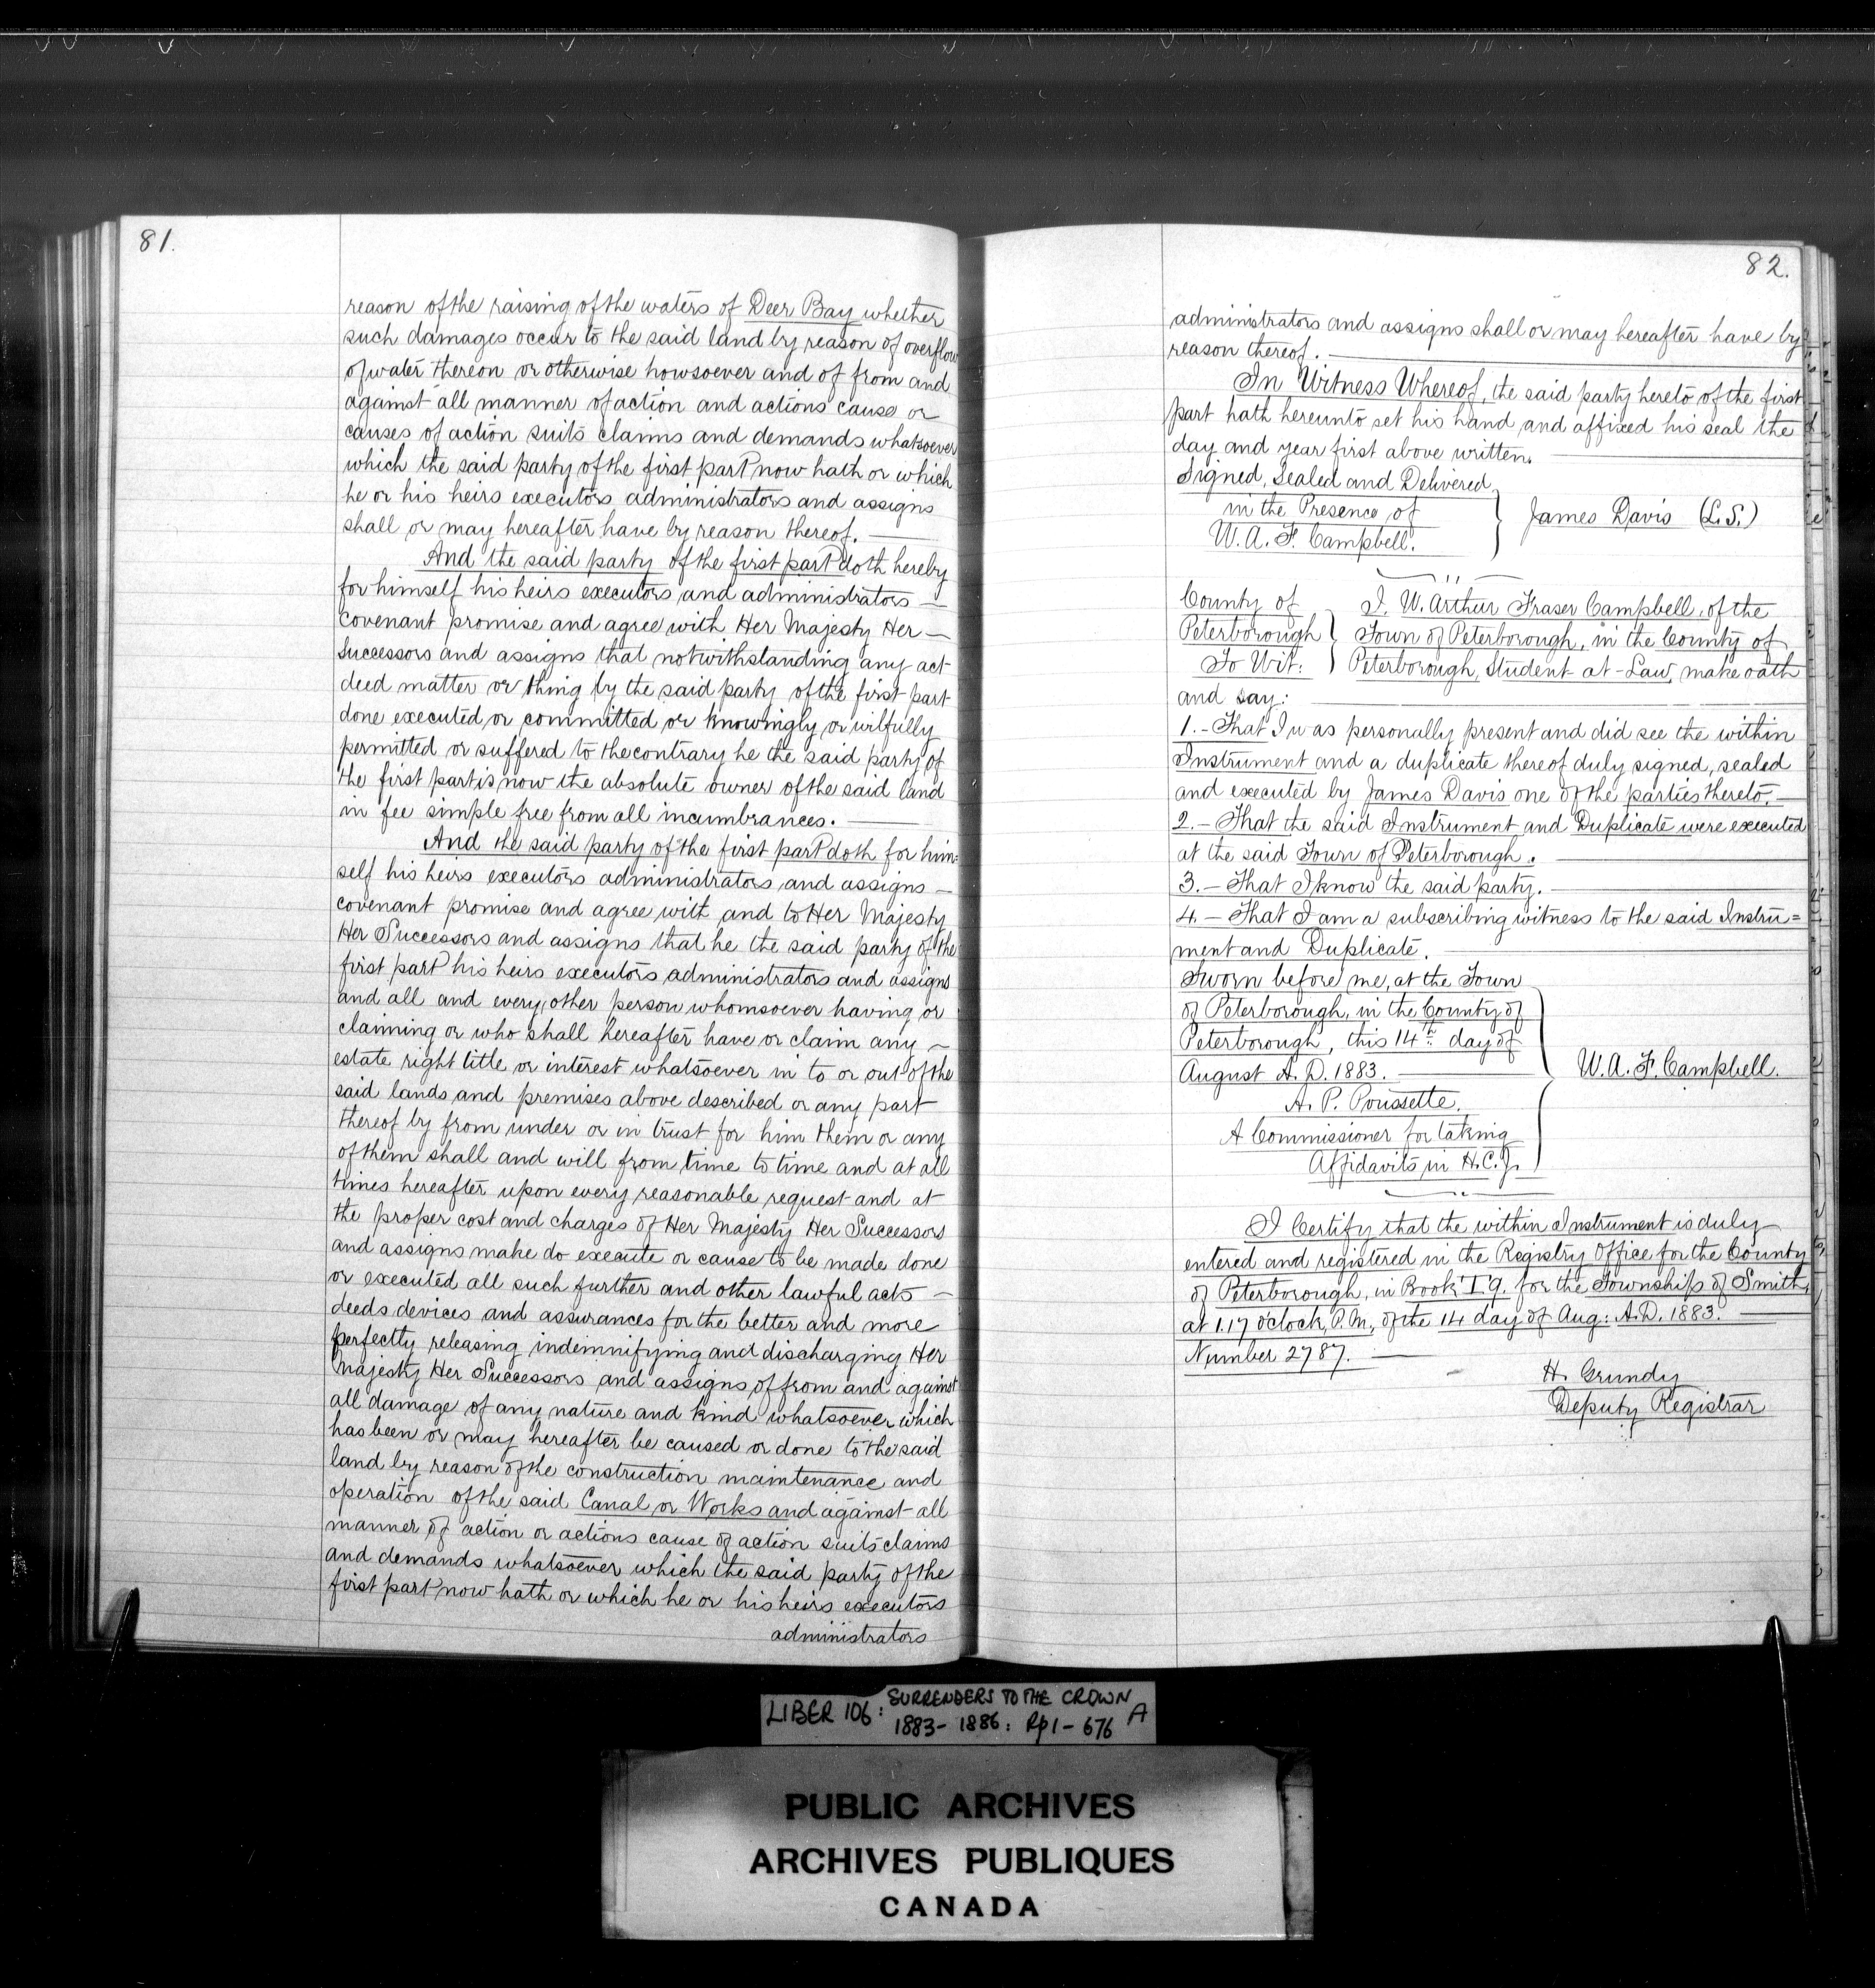 81.
reason of the raising of the waters of Deer Bay whether
such damages occur to the said land by reason of overflow
of water thereon or otherwise howsoever and of from and
against all manner of action and actions cause or
causes of action suits claims and demands whatsoever
which the said party of the first part now hath or which
he or his heirs executors administrators and assigns
shall or may hereafter have by reason thereof. —
And the said party of the first part doth hereby
for himself his heirs executors and administrators —
covenant promise and agree with Her Majesty Her —
Successors and assigns that notwithstanding any act
deed matter or thing by the said party of the first part
done executed or committed or knowingly or wilfully
permitted or suffered to the contrary he the said party of
the first part is now the absolute owner of the said land
in fee simple free from all incumbrances. —
And the said party of the first part doth for him=
self his heirs executors administrators and assigns —
covenant promise and agree with and to Her Majesty
Her Successors and assigns that he the said party of the
first part his heirs executors administrators and assigns
and all and every other person whomsoever having or
claiming or who shall hereafter have or claim any —
estate right title or interest whatsoever in to or out of the
said lands and premises above described or any part
thereof by from under or in trust for him them or any
of them shall and will from time to time and at all
times hereafter upon every reasonable request and at
the proper cost and charges of Her Majesty Her Successors
and assigns make do execute or cause to be made done
or executed all such further and other lawful acts —
deeds devices and assurances for the better and more
perfectly releasing indemnifying and discharging Her
Majesty Her Successors and assigns of from and against
all damage of any nature and kind whatsoever which
has been or may hereafter be caused or done to the said
land by reason of the construction maintenance and
operation of the said Canal or Works and against all
manner of action or actions cause of action suits claims
and demands whatsoever which the said party of the
first part now hath or which he or his heirs executors
administrators
82.
administrators and assigns shall or may hereafter have by
reason thereof. —
In Witness Whereof, the said party hereto of the first
part hath hereunto set his hand and affixed his seal the
day and year first above written. —
Signed, Sealed and Delivered
in the Presence of
W. A. F. Campbell.
James Davis (L.S.)
County of
Peterborough
To Wit:
I, W. Arthur Fraser Campbell, of the
Town of Peterborough, in the County of
Peterborough, Student-at-Law, make oath
and say: —
1.- That I was personally present and did see the within
Instrument and a duplicate thereof duly signed, sealed
and executed by James Davis one of the parties thereto. —
2.- That the said Instrument and Duplicate were executed
at the said Town of Peterborough. —
3.- That I know the said party. —
4.- That I am a subscribing witness to the said Instru=
ment and Duplicate. —
Sworn before me, at the Town
of Peterborough, in the County of
Peterborough, this 14th day of
August A.D. 1883. —
A. P. Poussette.
A Commissioner for taking
Affidavits in H.C.J.
W. A. F. Campbell.
I Certify that the within Instrument is duly
entered and registered in the Registry Office for the County
of Peterborough, in Book I 9. for the Township of Smith,
at 1.17 o'clock, P.M., of the 14 day of Aug: A.D. 1883. —
Number 2787. —
H. Grundy
Deputy Registrar
LIBER 106: SURRENDERS TO THE CROWN A
1883-1886: Rp1-676
PUBLIC ARCHIVES
ARCHIVES PUBLIQUES
CANADA